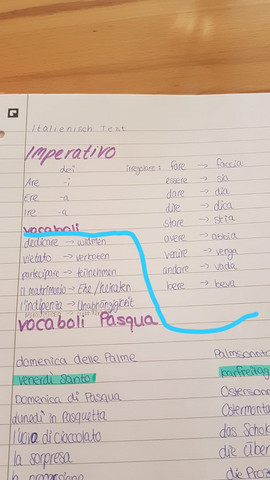 Italienisch Test
Imperativo
dei
Are -i
Ere -a
Ire -a
irregolare: fare → faccia
essere → sia
dare → dia
dire → dica
stare → stia
avere → abbia
venire → venga
andare → vada
bere → beva
vocaboli
dedicare → widmen
vietato → verboten
partecipare → teilnehmen
il matrimonio → Ehe/heiraten
l'indipenza → Unabhängigkeit
vocaboli Pasqua
domenica delle Palme Palmsonnta
Venerdì Santo Karfreitag
Domenica di Pasqua Osterson
Lunedì in Pasquetta Ostermonta
l'uovo di cioccolato das Schok
la sorpresa die Über
la die Proz